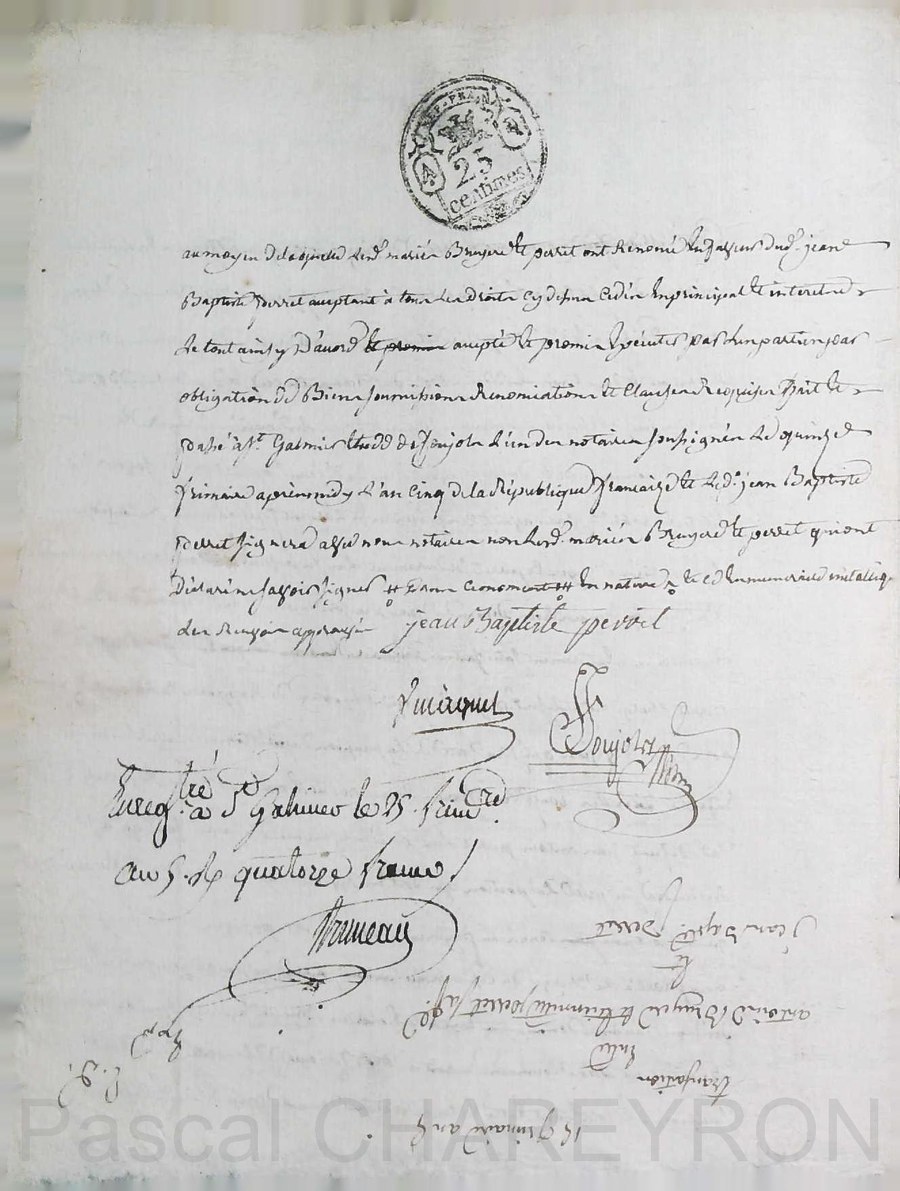 REP. FRA.
25
centimes
au moyen de laquelle led. mariés Bruyere et perret ont Renoncé en faveur dud. jean
Baptiste perret acceptant à tous les droits cy dessus cedés en principal et interets
le tout ainsy d'acord le promis accepté et promis Executer par les parties par
obligation de Biens soumissions Renonciations et Clauses Requises fait et
passé à St. Galmier Etude de Soujols l'un des notaires soussignés le quinze
frimaire après midy l'an Cinq de la République francaize et led. jean Baptiste
perret signera avec nous notaires non lesd. mariés Bruyere et perret qui ont
Déclaré ne savoir signer en nature et en numeraire metallique
jean Baptiste perret
Soujols
Enregtré à St Galmier le 25 frimre
an 5. R quatorze francs
Bruneau
15 frimaire an 5
transaction
Entre
antoine Bruyere et perret sa fe
Et
Jean Bapte perret
Pascal CHAREYRON